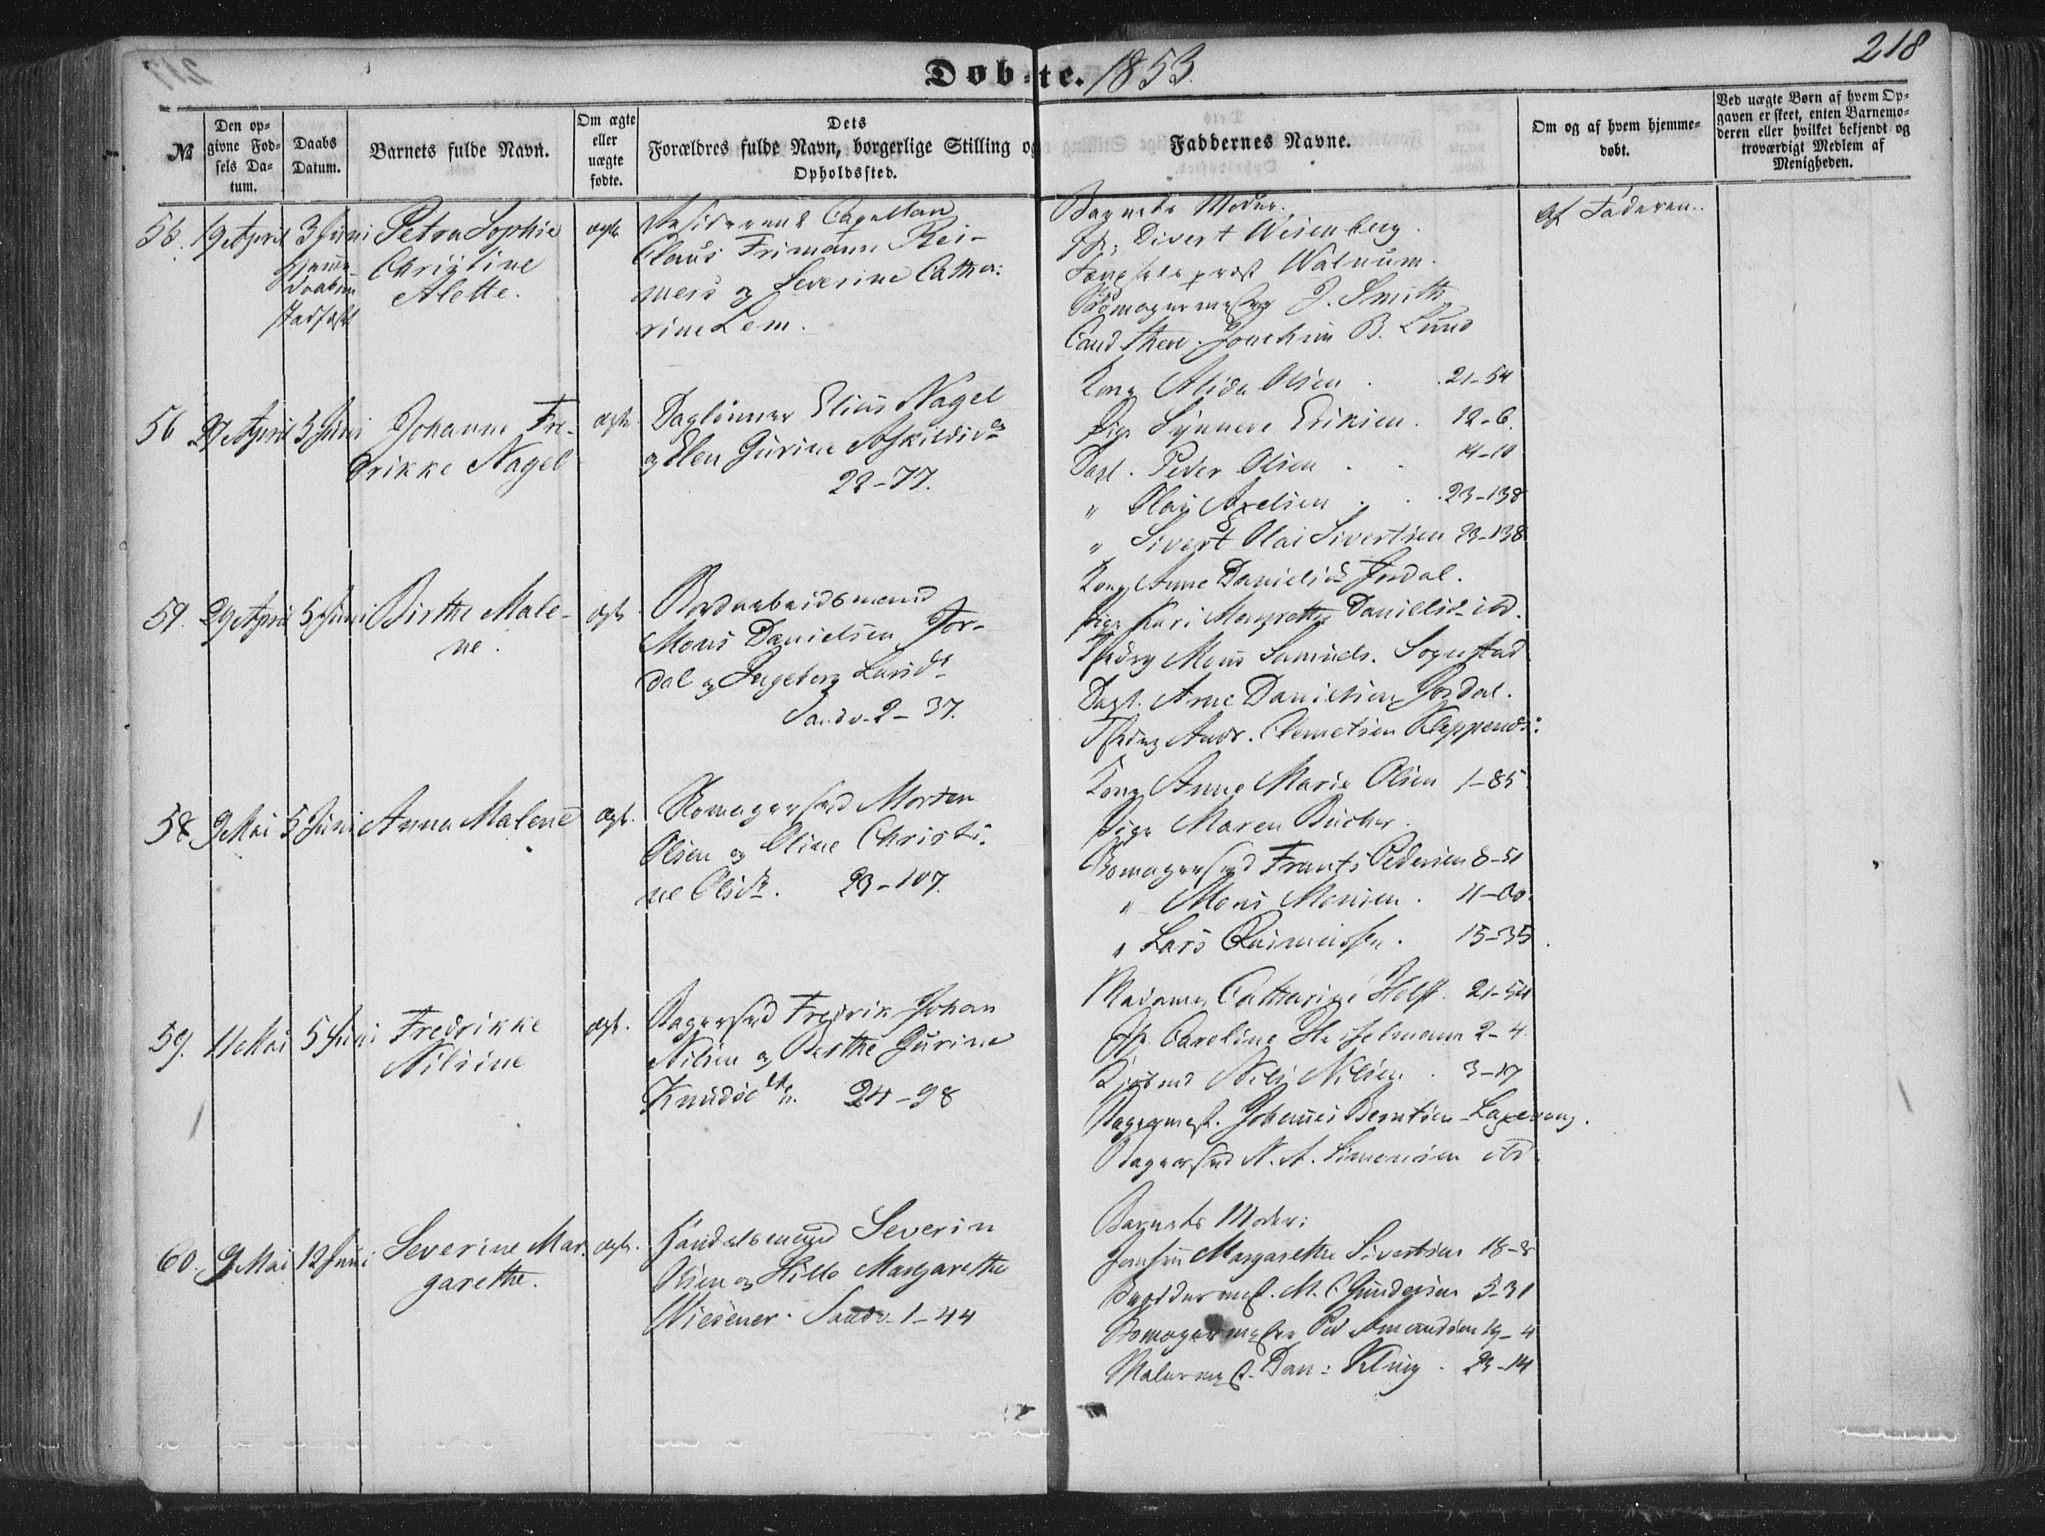 Døbte. 1853.
218
№
Den op-
givne Fød-
sels Da-
tum.
Daabs
Datum.
Barnets fulde Navn.
Om ægte
eller
uægte
fødte.
Dets
Forældres fulde Navn, borgerlige Stilling og
Opholdssted.
Faddernes Navne.
Om og af hvem hjemme-
døbt.
Ved uægte Børn af hvem Op-
gaven er skeet, enten Barnemo-
deren eller hvilket bekjendt og
troværdigt Medlem af
Menigheden.
19 April
3 Juni
Petra Sophie
Christine
Alette.
ægte
Residerende Capellan
Claus Frimann Rei-
mers og Severine Catha-
rine Lem.
Barnets Moder.
Divert Wesenberg.
Walnum.
J. Smith
Cand. theol. Joachim B. Lund
Af Faderen.
56
27 April
5 Juni
Johanne Fre-
drikke Nagel
ægte
Dagleinner Elias Nagel
og Elen Gurine Askildsd
22-77.
Kone Alida Olsen . 21-54
Pige Synneve Eriksen. 12-6.
Dagl. Peder Olsen . 14-10
" Olai Axelsen . 23-138
" Sivert Olai Sivertsen 23-138
59.
29 April
5 Juni
Birthe Male-
ne.
ægte
Bordarbeidsmand
Mons Danielsen Jor-
dal og Ingeborg Larsd
Sandv. 2-37.
Kone Anne Danielsd Jordal.
Pige Kari Margrethe Danielsd ibd.
Mons Samuels. Sognstad
Dagl. Arne Danielsen Jordal.
Andr. Clemetsen
58.
9 Mai
5 Juni
Anna Malene
ægt.
Skomagersvd Morten
Olsen og Oline Christi-
ne Olsd. 23-107.
Kone Anne Marie Olsen 1-85
Pige Maren Bucher.
Skomagersvd Frants Pedersen 8-51
" Mons Monsen. 11-60.
" Lars Rasmussen. 15-35.
59.
11 Mai
5 Juni
Fredrikke
Nilsine
ægt.
Bagersvd Fredrik Johan
Nilsen og Berthe Gurine
Knudsdtr. 24-98
Madame Catharine Holst. 21-54
Caroline Hesselmann 2-4.
Nils Nilsen . 3-17
Bagermest. Johannes Berntsen
Bagersvd N. A. Simonsen ibd.
60.
9 Mai
12 Juni
Severine Mar-
garethe.
ægt.
Handelsmand Severin
Olsen og Hille Margarethe
Wiesener. Sandv. 1-44
Barnets Moder:
Jomfru Margarethe Sivertsen 18-8
M. C. Gundersen 5-31
Skomagermester Ped Amundsen 19-4
Malermest. Dan: Kling. 23-14